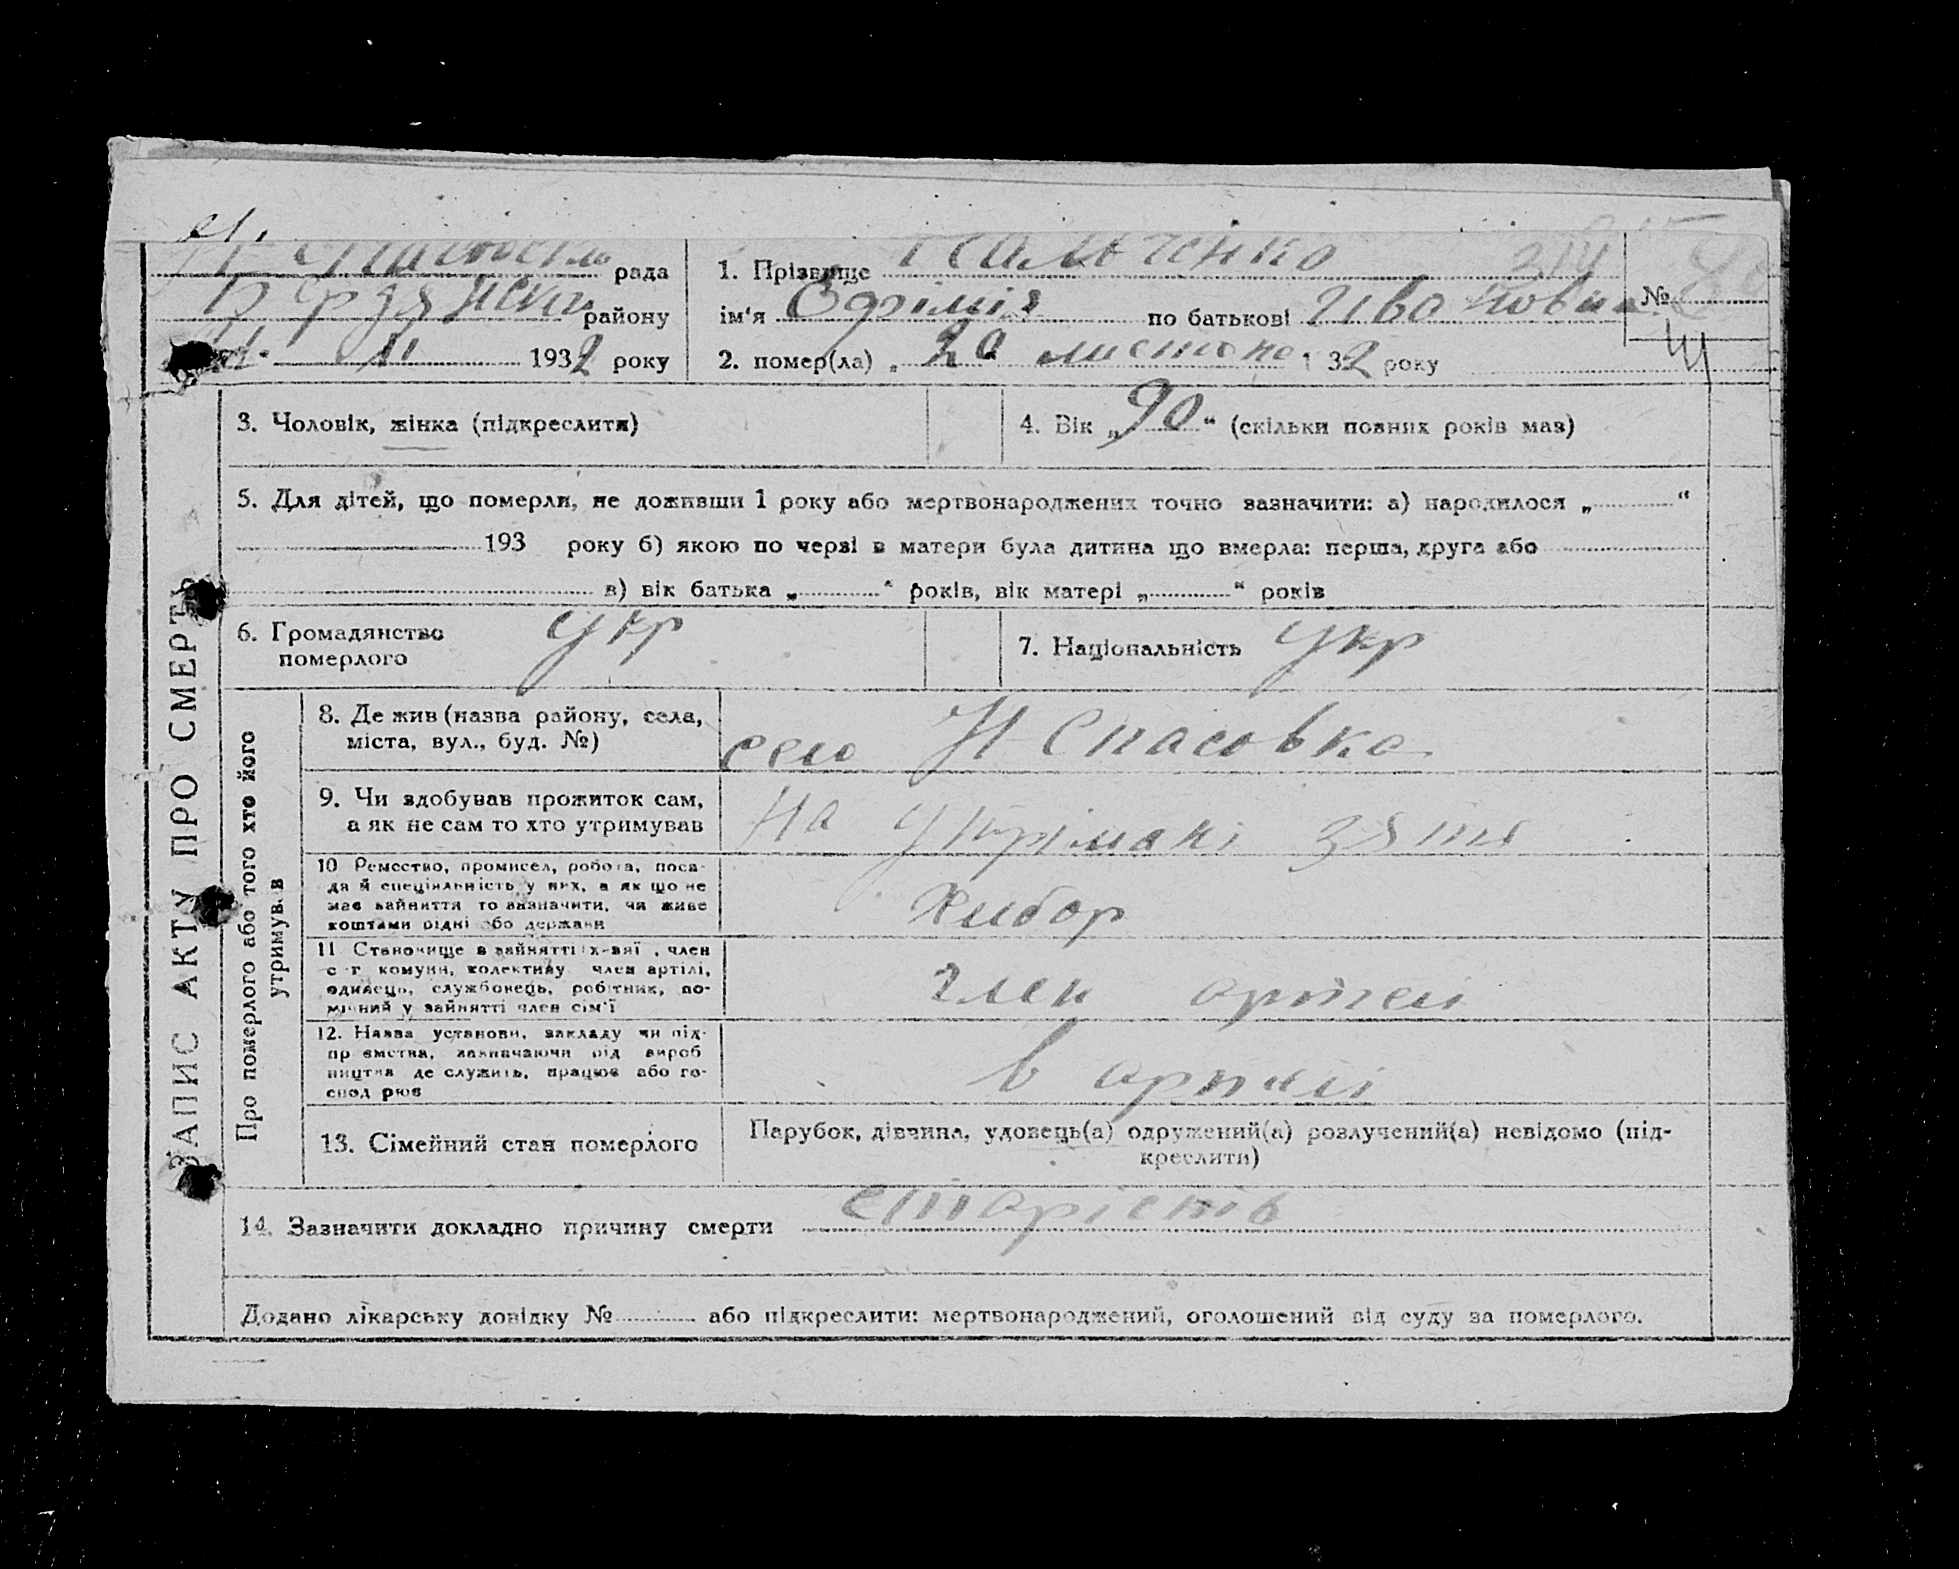 рада
району
11 1932 року
1. Прізвище
ім'я Єфімія по батькові Ивановна №
2. помер(ла) „ 20 листопа 132 року
ЗАПИС АКТУ ПРО СМЕРТЬ
3. Чоловік, жінка (підкреслити)
4. Вік „ 90 “ (скільки повних років мав)
5. Для дітей, що померли, не доживши 1 року або мертвонароджених точно зазначити: а) народилося „ “
193 року б) якою по черзі в матери була дитина що вмерла: перша, друга або
в) вік батька „ “ років, вік матері „ “ років
6. Громадянство
померлого укр
7. Національність укр
Про померлого або того хто його
утримував
8. Де жив (назва району, села,
міста, вул., буд. №)
село Н Спасовка
9. Чи здобував прожиток сам,
а як не сам то хто утримував
на утрімані зятя
10 Ремество, промисел, робота, поса-
да й спеціяльність у них, а як що не
має зайняття то зазначити, чи живе
коштами рідні або держави
Хлибор
11 Становище в зайнятті член
с-г комуни, колективу член артілі,
одинець, службовець, робітник, по-
мічний у зайнятті член сім'ї
член артелі
12. Назва установи, закладу чи під-
приємства, зазначаючи рід вироб
ництва де служить, працює або го-
сподарює
в артилі
13. Сімейний стан померлого
Парубок, дівчина, удовець(а) одружений(а) розлучений(а) невідомо (під-
креслити)
14. Зазначити докладно причину смерти старість
Додано лікарську довідку № або підкреслити: мертвонароджений, оголошений від суду за померлого.